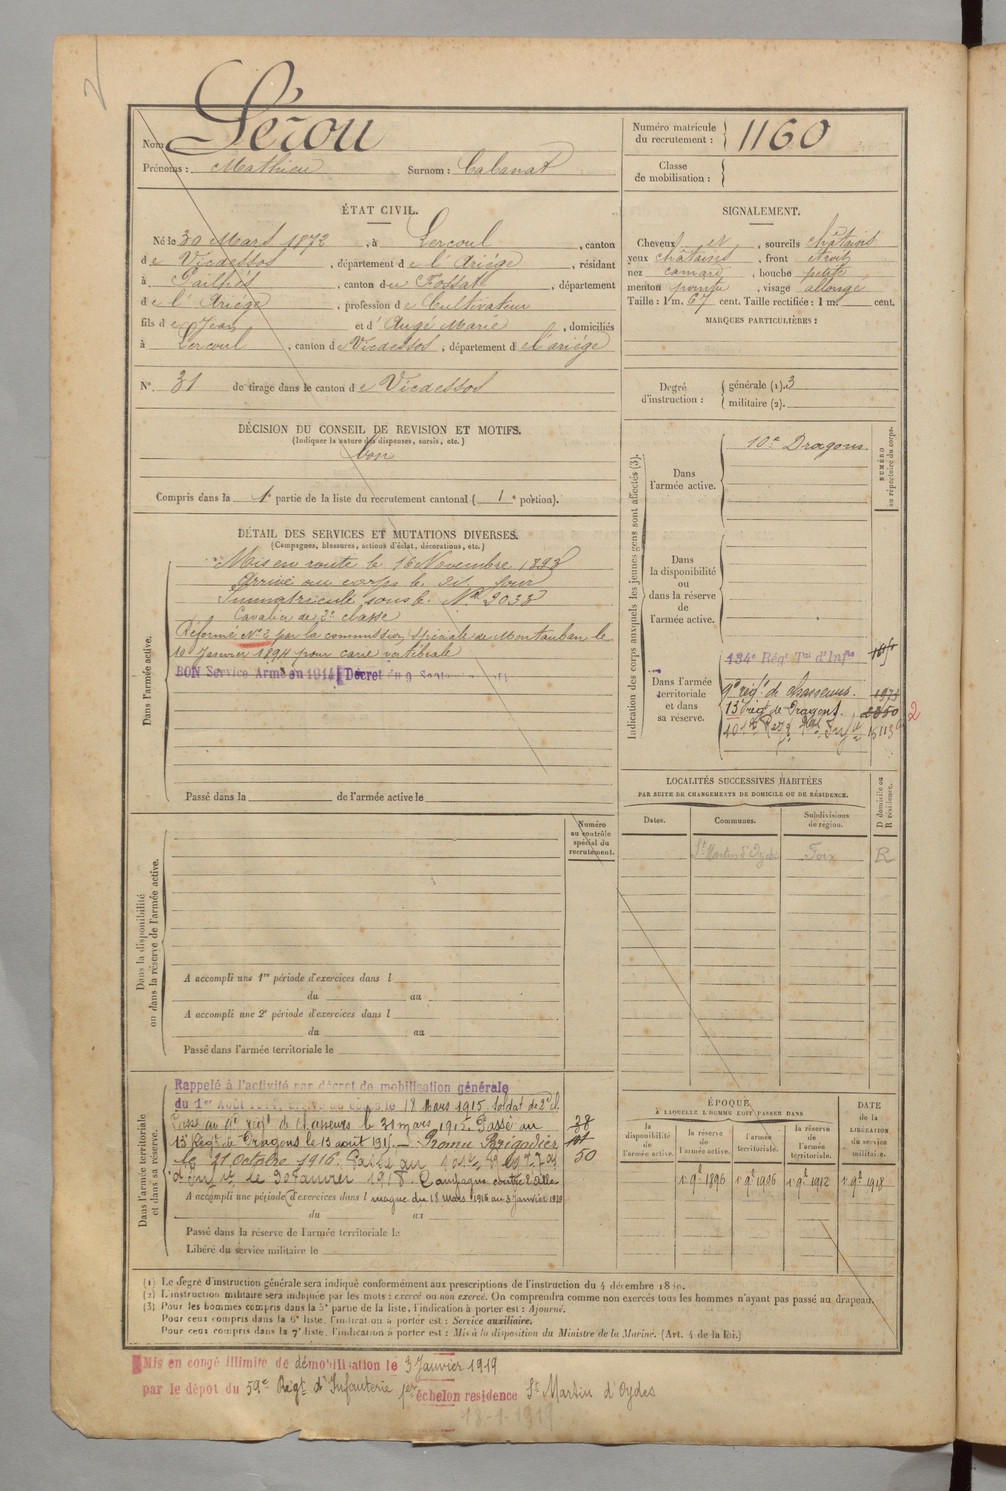 Nom Lérou
Prénoms : Mathieu Surnom : Cabanat
Numéro matricule du recrutement : 1160
Classe de mobilisation :
ÉTAT CIVIL.
Né le 30 Mars 1872, à Lercoul, canton
de Vicdessos, département de l'Ariége, résidant
à Gailhès, canton du Fossat, département
de l'Ariége, profession de Cultivateur
fils de Jean et d'Augé Marie, domiciliés
à Lercoul, canton de Vicdessos, département de l'ariége
N° 31 de tirage dans le canton de Vicdessos
SIGNALEMENT.
Cheveux et, sourcils châtains
yeux châtains, front étroit
nez camard, bouche petite
menton pointu, visage allongé
Taille : 1 m. 67 cent. Taille rectifiée : 1 m. cent.
MARQUES PARTICULIÈRES :
Degré d'instruction : générale (1). 3
militaire (2).
DÉCISION DU CONSEIL DE REVISION ET MOTIFS.
(Indiquer la nature des dispenses, sursis, etc.)
bon
Compris dans la 1e partie de la liste du recrutement cantonal ( 1e portion).
DÉTAIL DES SERVICES ET MUTATIONS DIVERSES.
(Campagnes, blessures, actions d'éclat, décorations, etc.)
Dans l'armée active.
Mis en route le 16 Novembre 1893
Arrivé au corps le dit jour
Immatriculé sous le N° 2033
Cavalier de 2e classe
Réformé N° 2 par la commission spéciale de Montauban le
10 Janvier 1894 pour carie vertébrale
BON Service Armé en 1914 Décret du 9 Septembre
Passé dans la de l'armée active le
Indication des corps auxquels les jeunes gens sont affectés (3).
NUMÉRO au répertoire du corps.
Dans l'armée active.
10e Dragons
Dans la disponibilité ou dans la réserve de l'armée active.
Dans l'armée territoriale et dans sa réserve.
134e Régt Tal d'Infie
9e régt de chasseurs. 1973
13e régt de Dragons. 2350 2
LOCALITÉS SUCCESSIVES HABITÉES
PAR SUITE DE CHANGEMENTS DE DOMICILE OU DE RÉSIDENCE.
Dates. Communes. Subdivisions de région. D domicile ou R résidence.
St Martin d'Oydes Foix R
Dans la disponibilité ou dans la réserve de l'armée active.
Numéro au contrôle spécial du recrutement.
A accompli une 1re période d'exercices dans l
du au
A accompli une 2e période d'exercices dans l
du au
Passé dans l'armée territoriale le
Dans l'armée territoriale et dans sa réserve.
Rappelé à l'activité par décret de mobilisation générale
du 1er Août 1914, arrivé au corps le 18 Mars 1915. Soldat de 2e cl.
Passé au 9e régt de chasseurs le 31 mars 1915. Passé au
13e Régt de Dragons le 13 août 1915. Promu Brigadier
le 21 Octobre 1916. Passé au
le 30 Janvier 1918. Campagne contre l'Alle
50
A accompli une période d'exercices dans l magne du 18 mars 1915 au 3 Janvier 1919
du au
Passé dans la réserve de l'armée territoriale le
Libéré du service militaire le
ÉPOQUE
À LAQUELLE L'HOMME DOIT PASSER DANS
la disponibilité de l'armée active.
la réserve de l'armée active.
l'armée territoriale.
la réserve de l'armée territoriale.
DATE de la LIBÉRATION du service militaire.
1 9e 1896 1 9e 1906 1 9e 1912 1 9e 1918
(1) Le degré d'instruction générale sera indiqué conformément aux prescriptions de l'instruction du 4 décembre 1889.
(2) L'instruction militaire sera indiquée par les mots : exercé ou non exercé. On comprendra comme non exercés tous les hommes n'ayant pas passé au drapeau.
(3) Pour les hommes compris dans la 5e partie de la liste, l'indication à porter est : Ajourné.
Pour ceux compris dans la 6e liste, l'indication à porter est : Service auxiliaire.
Pour ceux compris dans la 7e liste, l'indication à porter est : Mis à la disposition du Ministre de la Marine. (Art. 4 de la loi.)
Mis en congé illimité de démobilisation le 3 Janvier 1919
par le dépôt du 59e Régt d'Infanterie 1er échelon residence St Martin d'Oydes
18-1-1919